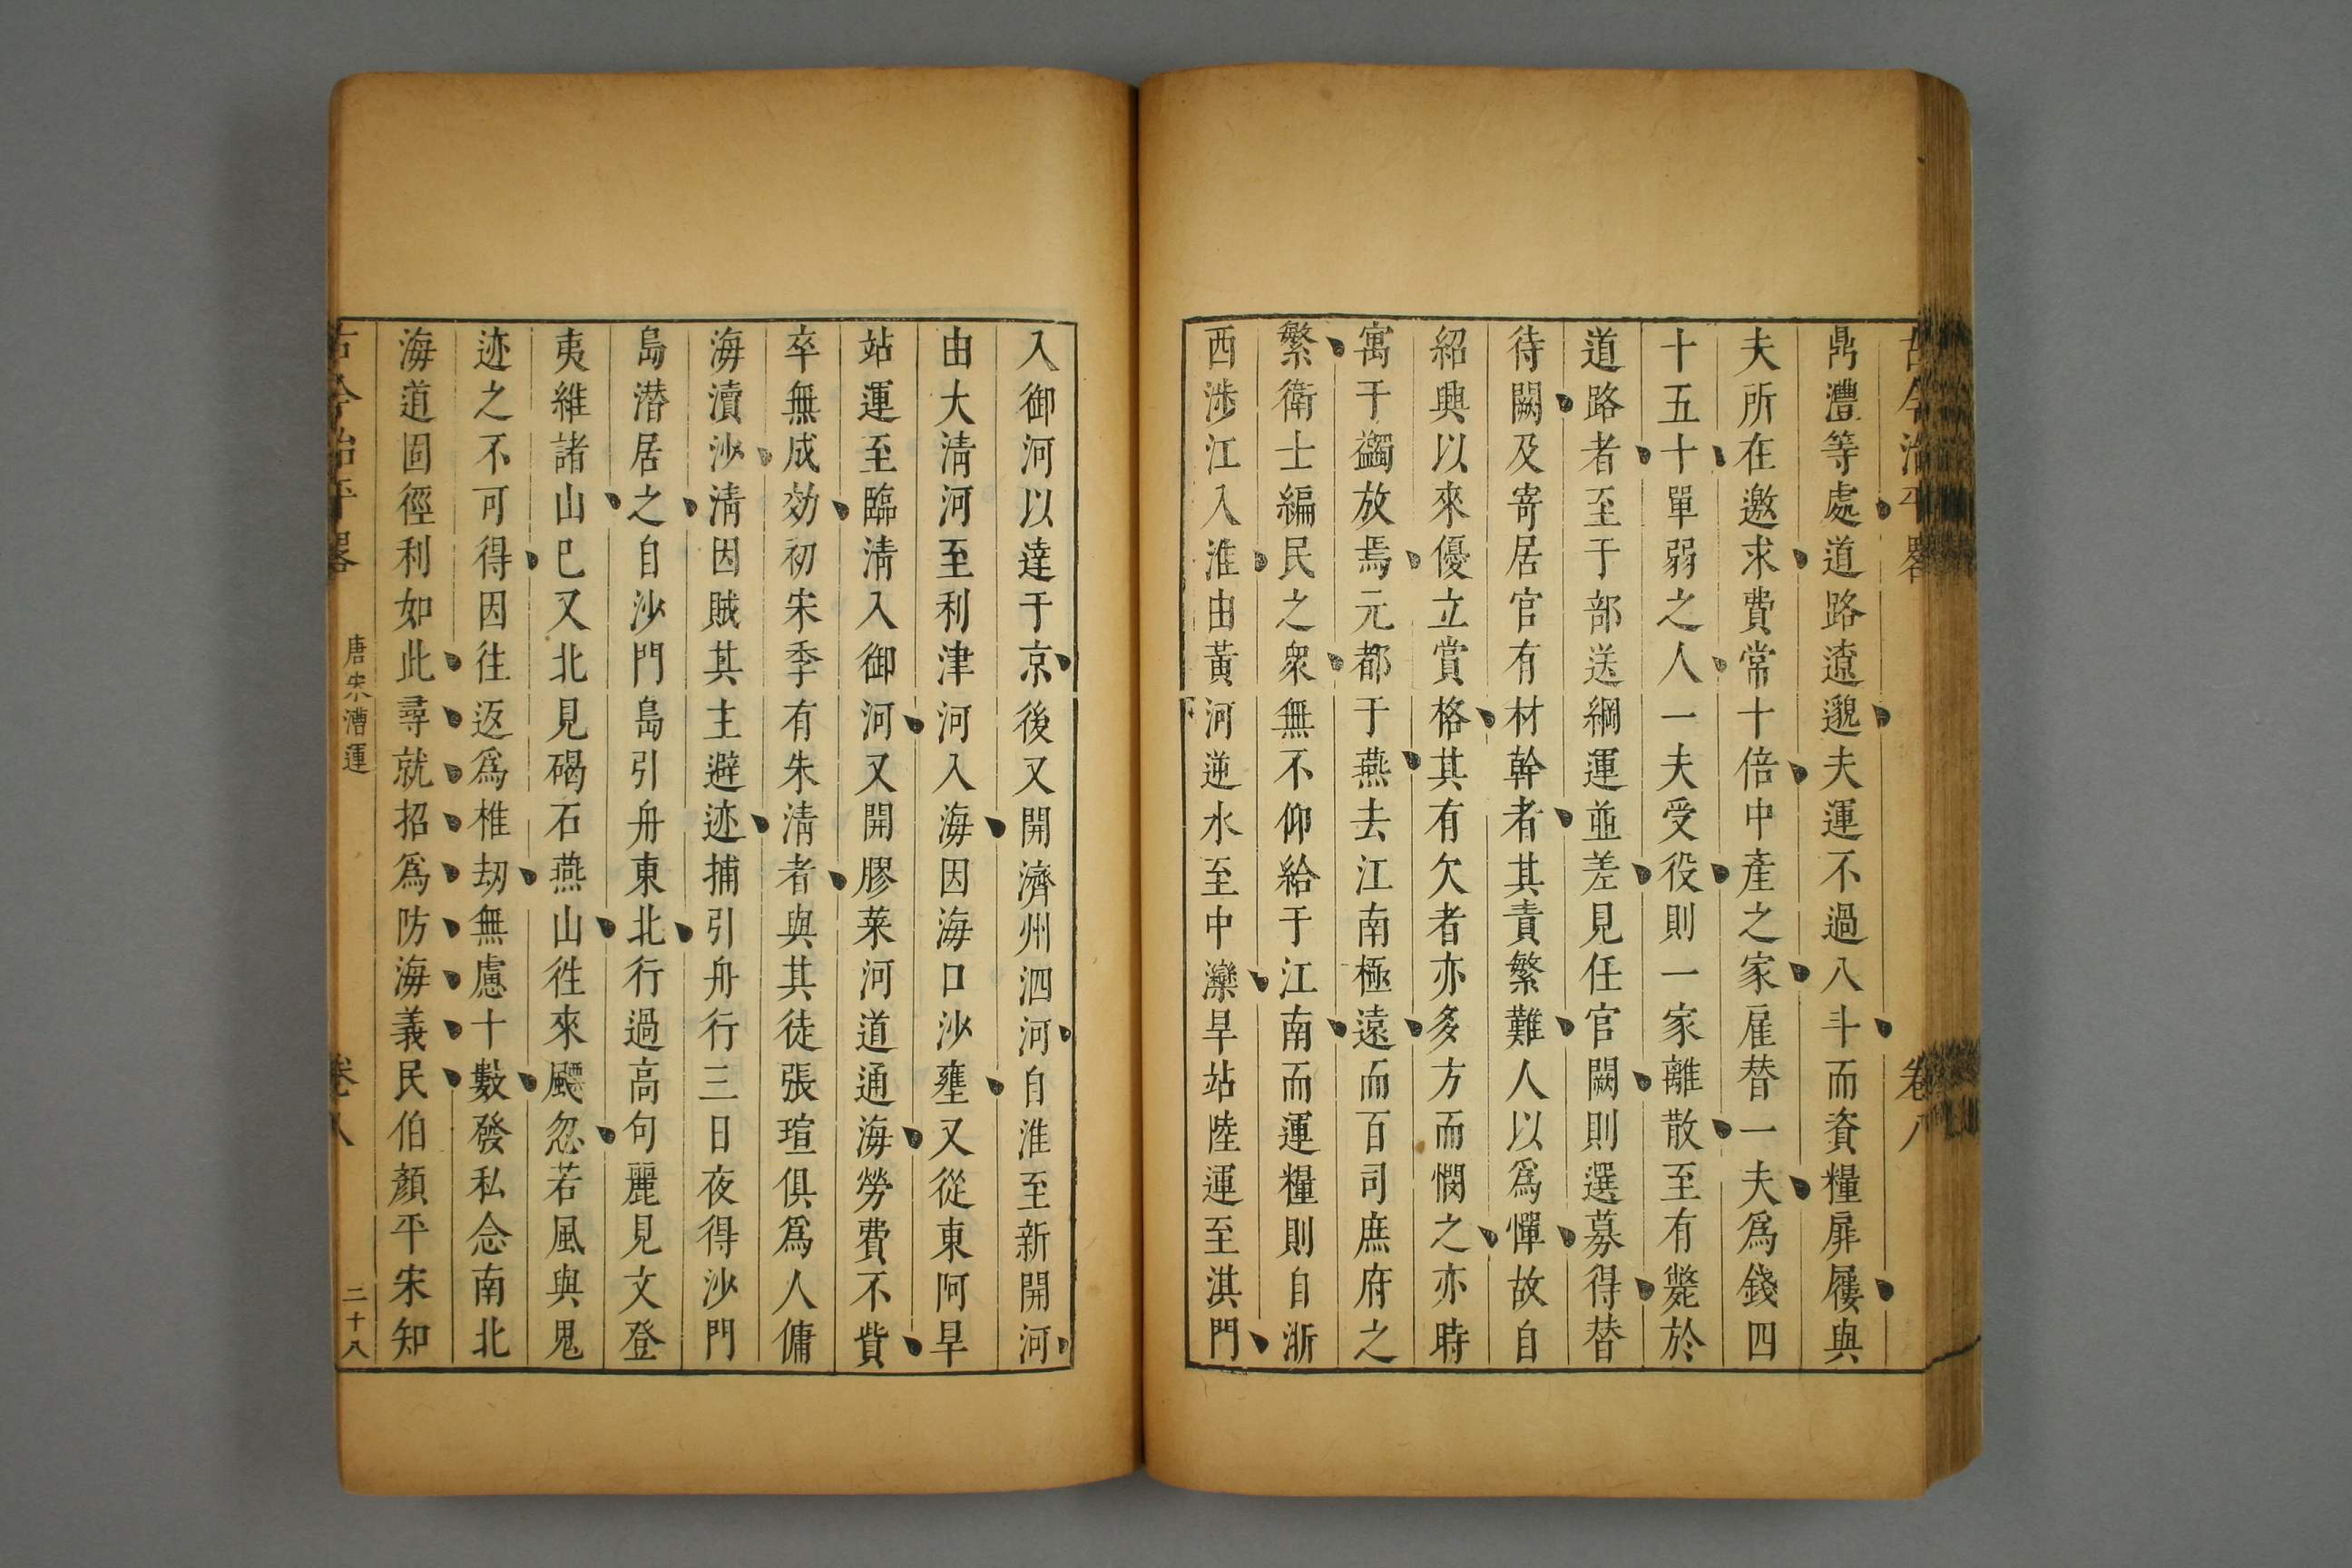 古今治平畧
卷八
鼎澧等處道路遼邈夫運不過八斗而資糧屝屨與
夫所在邀求費常十倍中產之家雇替一夫爲錢四
十五十單弱之人一夫受役則一家離散至有斃於
道路者至于部送綱運並差見任官闕則選募得替
待闕及寄居官有材幹者其責繁難人以爲憚故自
紹興以來優立賞格其有欠者亦多方而憫之亦時
寓于蠲放焉元都于燕去江南極遠而百司庶府之
繁衛士編民之衆無不仰給于江南而運糧則自浙
西涉江入淮由黃河逆水至中灤旱站陸運至淇門
入御河以達于京後又開濟州泗河自淮至新開河
由大淸河至利津河入海因海口沙壅又從東阿旱
站運至臨淸入御河又開膠萊河道通海勞費不貲
卒無成効初宋季有朱淸者與其徒張瑄俱爲人傭
海瀆沙淸因賊其主避迹捕引舟行三日夜得沙門
島潛居之自沙門島引舟東北行過高句麗見文登
夷維諸山巳又北見碣石燕山徃來飃忽若風與鬼
迹之不可得因往返爲椎刼無慮十數發私念南北
海道固徑利如此尋就招爲防海義民伯顏平宋知
古今治平畧
唐宋漕運
卷八
二十八